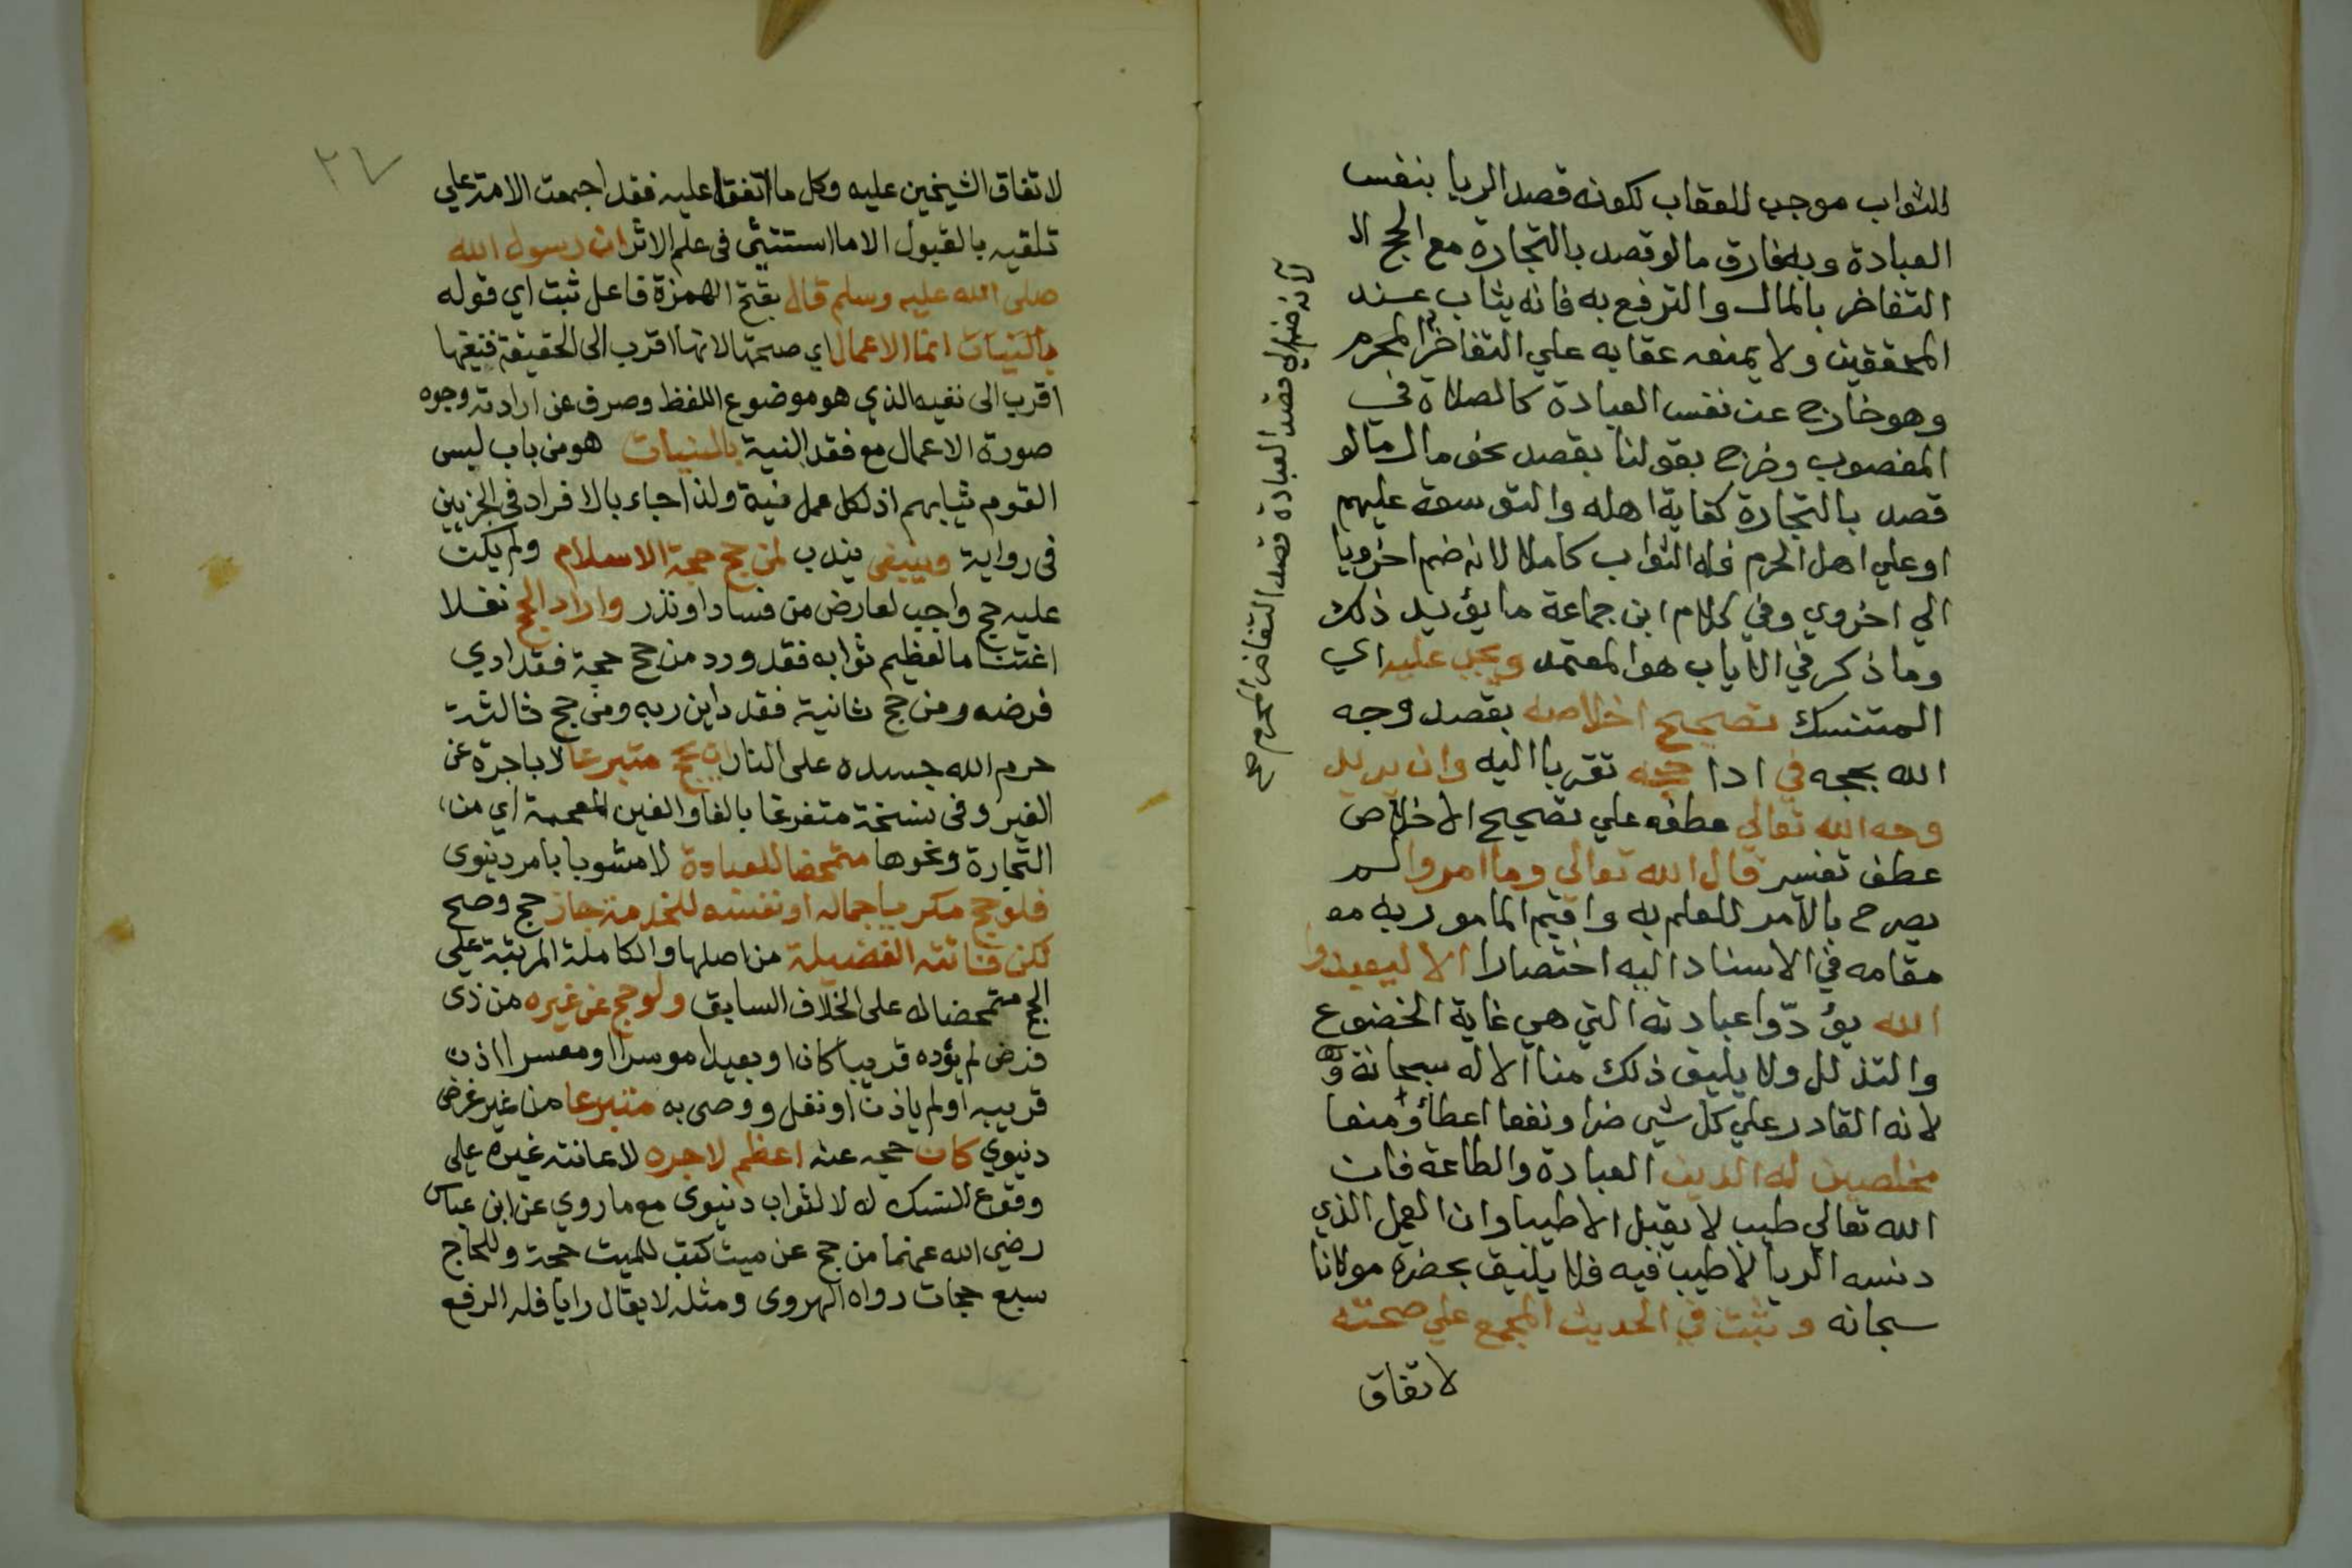 للثواب موجب للعقاب لكونه قصد الريا بنفس
العبادة وبه فارق ما لو قصد بالتجارة مع الحج الا
التفاخر بالمال والترفع به فانه يثاب عند
المحققين ولا يمنعه عقابه علي التفاخر المحرم
وهو خارج عن نفس العبادة كالصلاة في
المغصوب وخرج بقولنا بقصد نحو مال ما لو
قصد بالتجارة كفاية اهله والتوسعة عليهم
او علي اهل الحرم فله الثواب كاملا لانه ضم اخرويا
الي اخروي وفي كلام ابن جماعة ما يؤيد ذلك
وما ذكر في الاياب هو المعتمد ويجب عليه اي
المتنسك تصحيح اخلاصه بقصد وجه
الله بحجه في ادا حجه تقربا اليه وان يريد
وجه الله تعالي عطفه علي تصحيح الاخلاص
عطف تفسير قال الله تعالي وما امروا لم
يصرح بالآمر للعلم به واقيم المامور به مه
مقامه في الاسناد اليه اختصارا الا ليعبدوا
الله يؤدّوا عبادته التي هي غاية الخضوع
والتذلل ولا يليق ذلك منا الا له سبحانه و
لانه القادر علي كل شي ضرا ونفعا اعطاؤ منعا
مخلصين له الدين العبادة والطاعة فان
الله تعالي طيب لا يقبل الا طيبا وان العمل الذي
دنسه الريا لا طيب فيه فلا يليق بحضرة مولانا
سبحانه وثبت في الحديث المجمع علي صحته
لاتفاق
قصد العبادة قصد التفاخر المحرم صح
٢٧
لاتفاق الشيخين عليه وكل ما اتفقا عليه فقد اجمعت الامة علي
تلقيه بالقبول الا ما استثنى في علم الاثر ان رسول الله
صلى الله عليه وسلم قال بفتح الهمزة فاعل ثبت اي قوله
بالنيات انما الاعمال اي صحتها لانها اقرب الى الحقيقة فنفيها
اقرب الى نفيه الذي هو موضوع اللفظ وصرف عن ارادته وجوه
صورة الاعمال مع فقد النية بالنيات هو من باب لبس
القوم ثيابهم اذ لكل عمل نية ولذا جاء بالافراد في الجزيين
في رواية وينبغي يندب لمن حج حجة الاسلام ولم يكن
عليه حج واجب لعارض من فساد او نذر واراد الحج نفلا
اغتناما لعظيم ثوابه فقد ورد من حج حجة فقد ادي
فرضه ومن حج ثانية فقد داين ربه ومن حج ثالثة
حرم الله جسده على النار ان يحج متبرعا لا باجرة عن
الغير وفي نسخة متفرغا بالفا والغين المعجمة اي من
التجارة ونحوها متمحضا للعبادة لا مشوبا بامر دنيوي
فلو حج مكريا جماله او نفسه للخدمة جاز حج وصح
لكن فاتته الفضيلة من اصلها والكاملة المرتبة علي
الحج متمحضا له على الخلاف السابق ولو حج عن غيره من ذي
فرض لم يؤده قريبا كان او بعيدا موسرا او معسرا اذن
قريبه او لم ياذن او نفل ووصى به متبرعا من غير غرض
دنيوي كان حجه عنه اعظم لاجره لاعانته غيره على
وقوع النسك له لا لثواب دنيوى مع ما روي عن ابن عباس
رضي الله عنهما من حج عن ميت كتب للميت حجة وللحاج
سبع حجات رواه الهروى ومثله لا يقال رايا فله الرفع